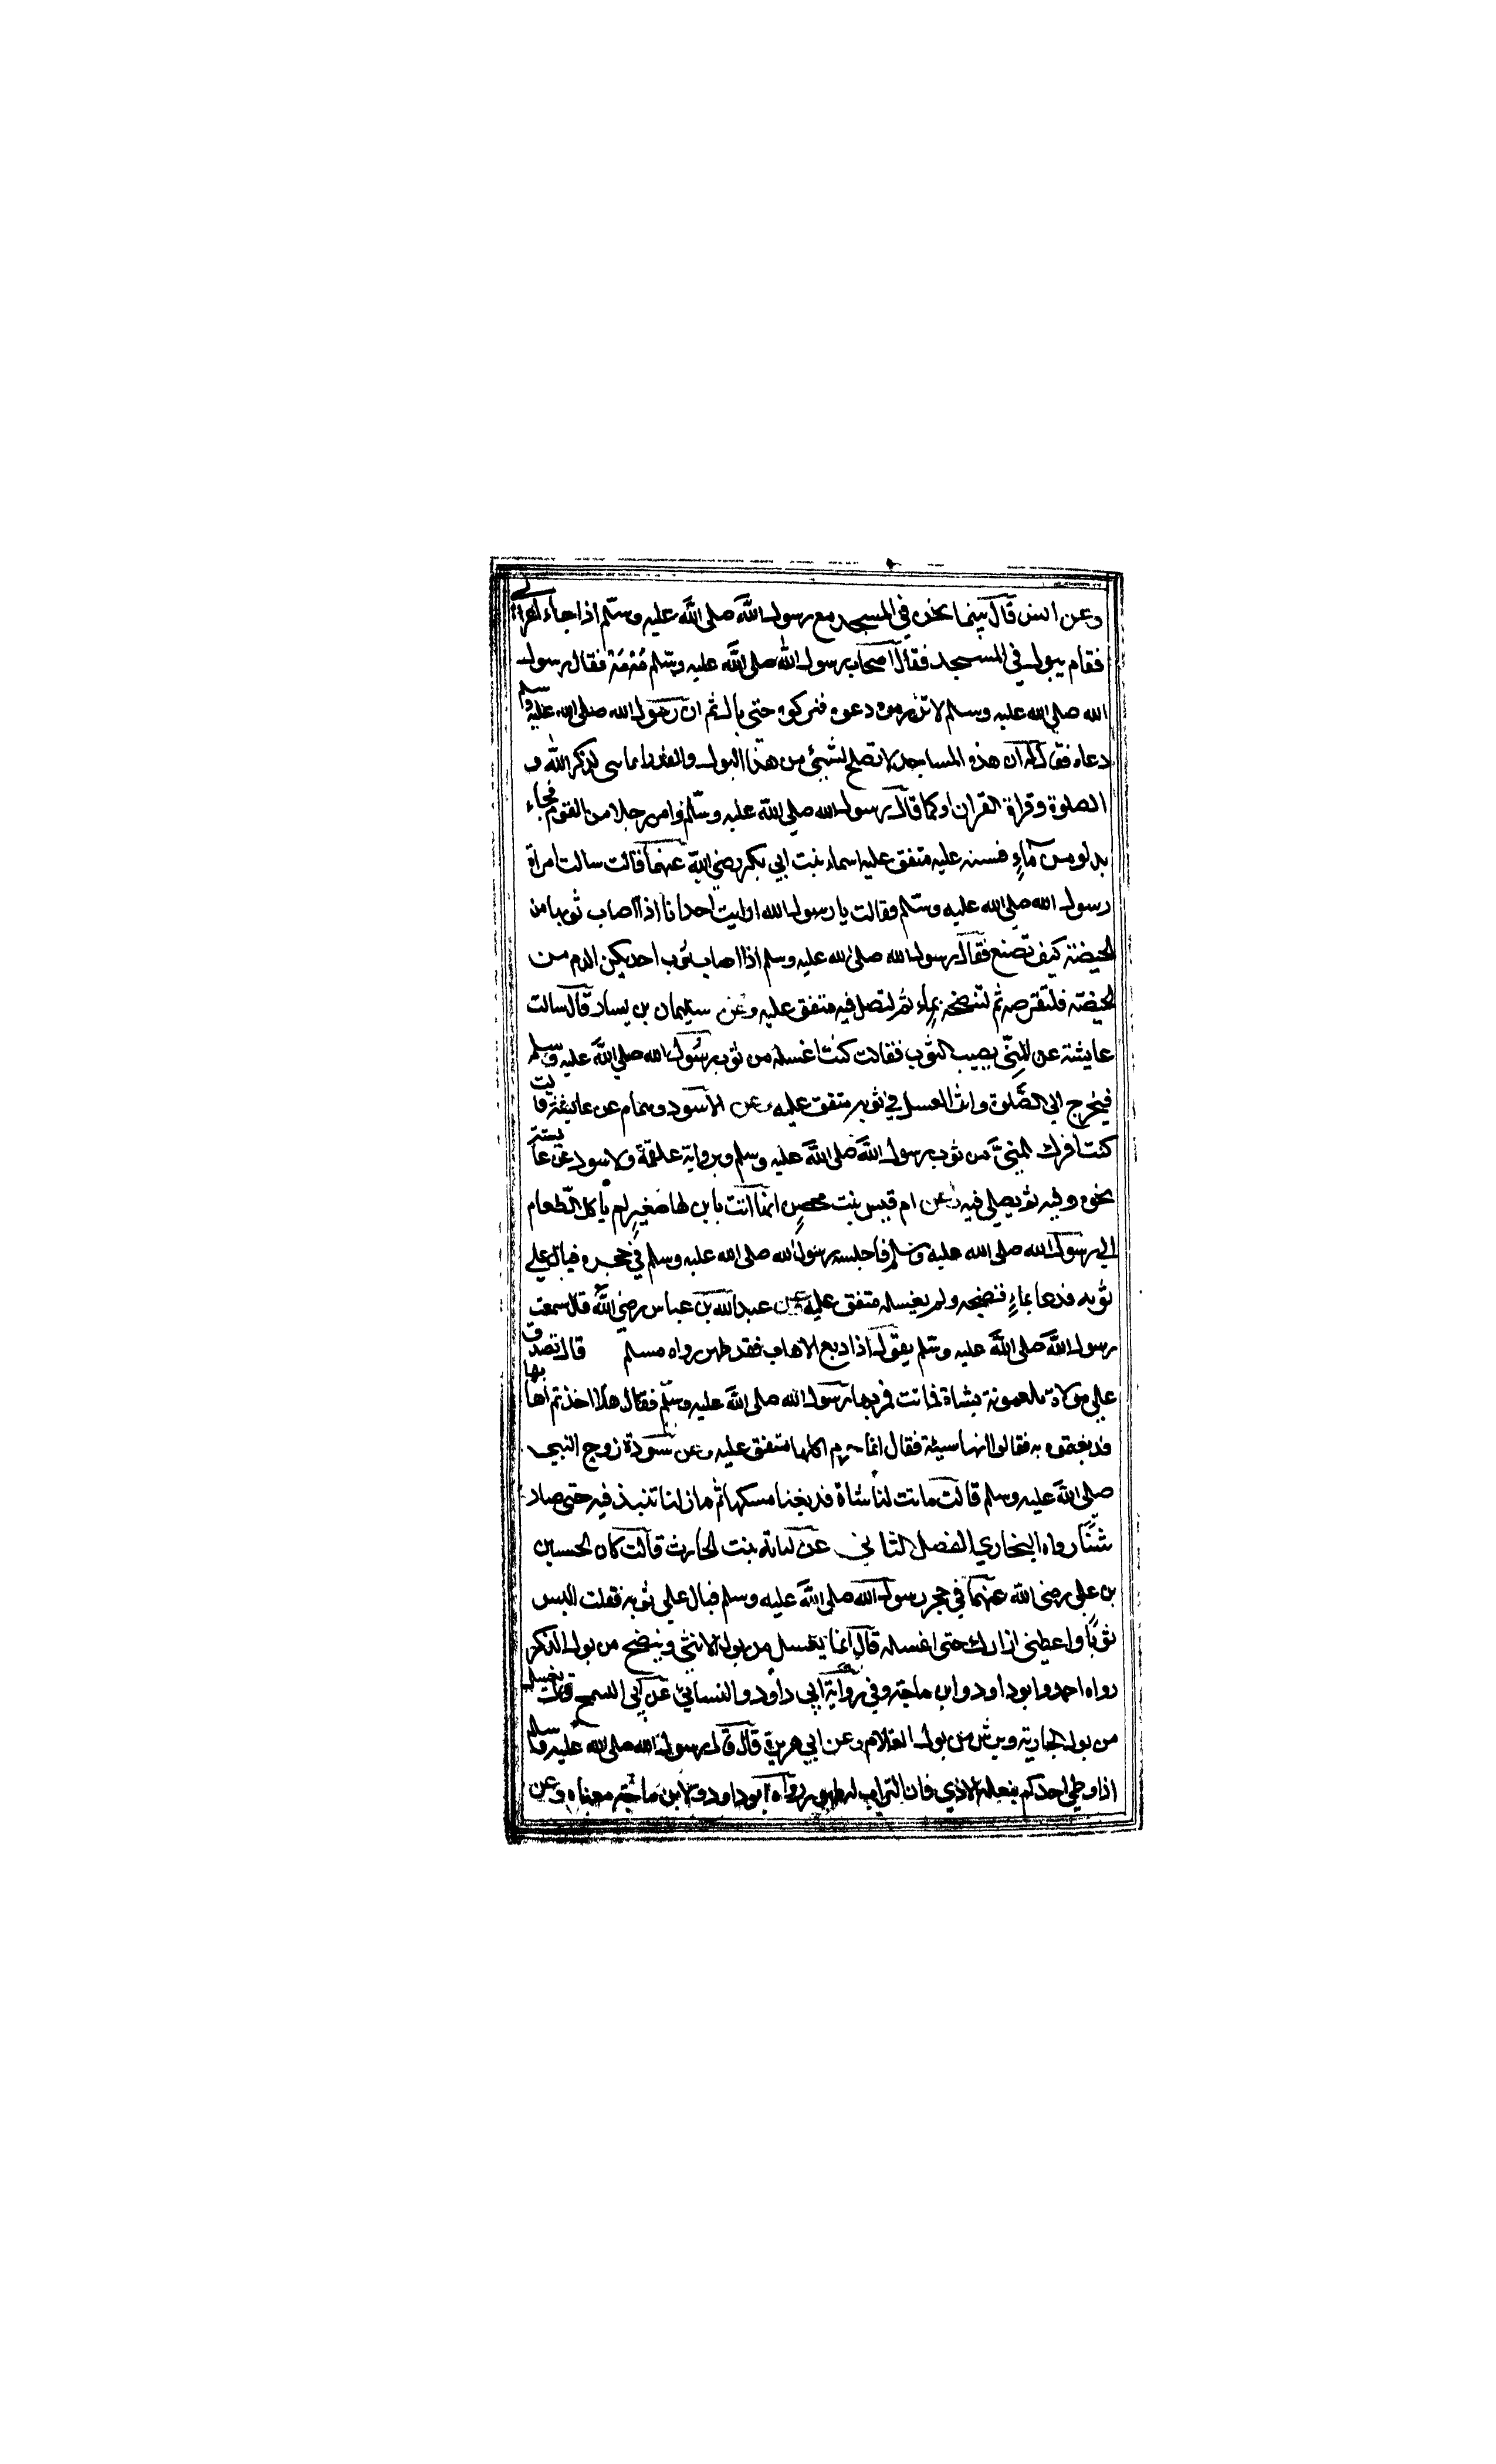 وعن انس قال بينما نحن في المسجد مع رسول الله صلى الله عليه وسلم اذا جاء اعرابي
فقام يبول في المسجد فقال اصحاب رسول الله صلى الله عليه وسلم مَه مَه فقال رسول
الله صلى الله عليه وسلم لا تزرموه دعوه فتركوه حتى بال ثم ان رسول الله صلى الله عليه وسلم
دعاه فقال له ان هذه المساجد لا تصلح لشيئ من هذا البول والقذر وانما هي لذكر الله و
الصلوة وقراة القران اوكما قال رسول الله صلى الله عليه وسلم وامر رجلا من القوم فجاء
بدلو من ماءٍ فسنه عليه متفق عليه اسماء بنت ابي بكر رضي الله عنهما قالت سالت امراة
رسول الله صلى الله عليه وسلم فقالت يا رسول الله ارايت احدانا اذا اصاب ثوبها من
الحيضة كيف تصنع فقال رسول الله صلى الله عليه وسلم اذا اصاب ثوب احديكن الدم من
الحيضة فلتقرصه ثم لتنضحه بماء ثم لتصل فيه متفق عليه وعن سليمان بن يسار قال سالت
عايشة عن المنيّ يصيب الثوب فقالت كنت اغسله من ثوب رسول الله صلى الله عليه وسلم
فيخرج الى الصلوة واثر الغسل في ثوبه متفق عليه وعن الاسود وهمام عن عايشة قالت
كنت افرك المنيّ من ثوب رسول الله صلى الله عليه وسلم وبرواية علقمة والاسود عن عايشة
نحوه وفيه ثم يصلي فيه وعن ام قيس بنت محصنٍ انها اتت بابن لها صغيرٍ لم ياكل الطعام
الى رسول الله صلى الله عليه وسلم فاجلسه رسول الله صلى الله عليه وسلم في حجره فبال على
ثوبه فدعا بماءٍ فنضحه ولم يغسله متفق عليه وعن عبد الله بن عباس رضي الله قال سمعت
رسول الله صلى الله عليه وسلم يقول اذا دبع الاهاب فقد طهر رواه مسلم قال تصدق
على مولاة لميمونة بشاة فماتت فمر بها رسول الله صلى الله عليه وسلم فقال هلا اخذتم اهابها
فدبغتموه به فقالوا انها ميتة فقال انما حرم اكلها متفق عليه وعن سودة زوج النبي
صلى الله عليه وسلم قالت ماتت لنا شاة فدبغنا مسكها ثم ما زلنا ننبذ فيه حتى صار
شنًّا رواه البخاري الفصل الثاني عن لبابة بنت الحارث قالت كان الحسين
بن علي رضي الله عنهما في حجر رسول الله صلى الله عليه وسلم فبال على ثوبه فقلت البس
ثوبًا واعطني ازارك حتى اغسله قال انما يغسل من بول الانثى وينضح من بول الذكر
رواه احمد وابو داود وابن ماجة وفي رواية ابي داود والنسائي عن ابي السمح قال يغسل
من بول الجارية ويرش من بول الغلام وعن ابي هريرة قال قال رسول الله صلى الله عليه وسلم
اذا وطي احدكم بنعله الاذي فان التراب له طهور رواه ابو داود ولابن ماجة معناه وعن